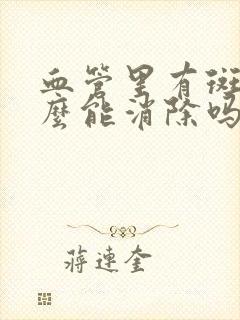 血管里有斑
麼能消除吗
蒋連奎